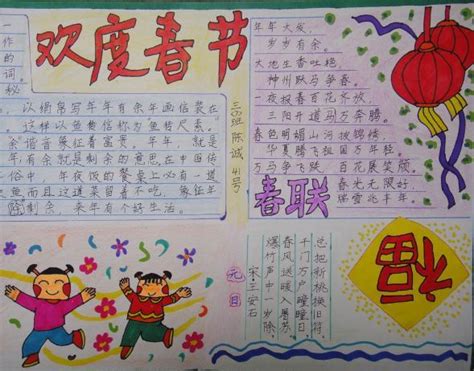 欢度春节
一
作
的
词。
秘
以绢帛写年年有余年画信装在
这样以鱼集信称为"鱼传尺素"。
余"谐音象征着富裕。年年,就是
就是有剩余的意思,在中国传
俗中,年夜饭的餐桌上必有一道
鱼而且这道菜留着不吃,象征年
除剩余,来年有个好生活。
三(3)班 陈诚 41号
年年大发,
岁岁有余。
大地生香吐绝,
神州跃马争春。
一夜报春百花齐放,
三阳开道万马奔腾。
春色明媚山河披锦绣,
华夏腾飞祖国万年轻。
万马争飞跃, 百花展笑颜
春光无限好
瑞雪兆丰年。
春联
元日
宋·王安石
爆竹声中一岁除,
春风送暖入屠苏。
千门万户曈曈日,
总把新桃换旧符。
福